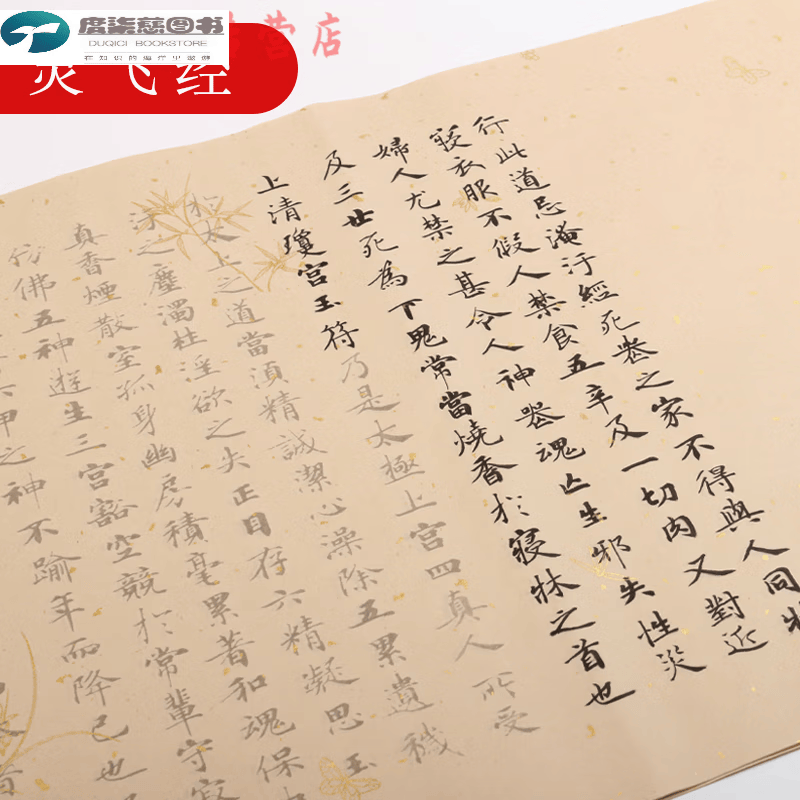 度柒慈图书
DUQICI BOOKSTORE
在知识的海洋里遨游
营店
灵飞经
行此道忌淹汙經死喪之家不得與人同牀
寢衣服不假人禁食五辛及一切肉又對近
婦人尤禁之甚令人神喪魂亡生邪失性災
及三世死為下鬼常當燒香於寢牀之首也
上清瓊宮玉符乃是太極上宮四真人所受
於太上之道當須精誠潔心澡除五累遺穢
汙之塵濁杜淫欲之失正目存六精凝思玉
真香煙散室孤身幽房積毫累著和魂保
仿佛五神遊生三宮豁空競於常輩守寂
六甲之神不踰年而降已也